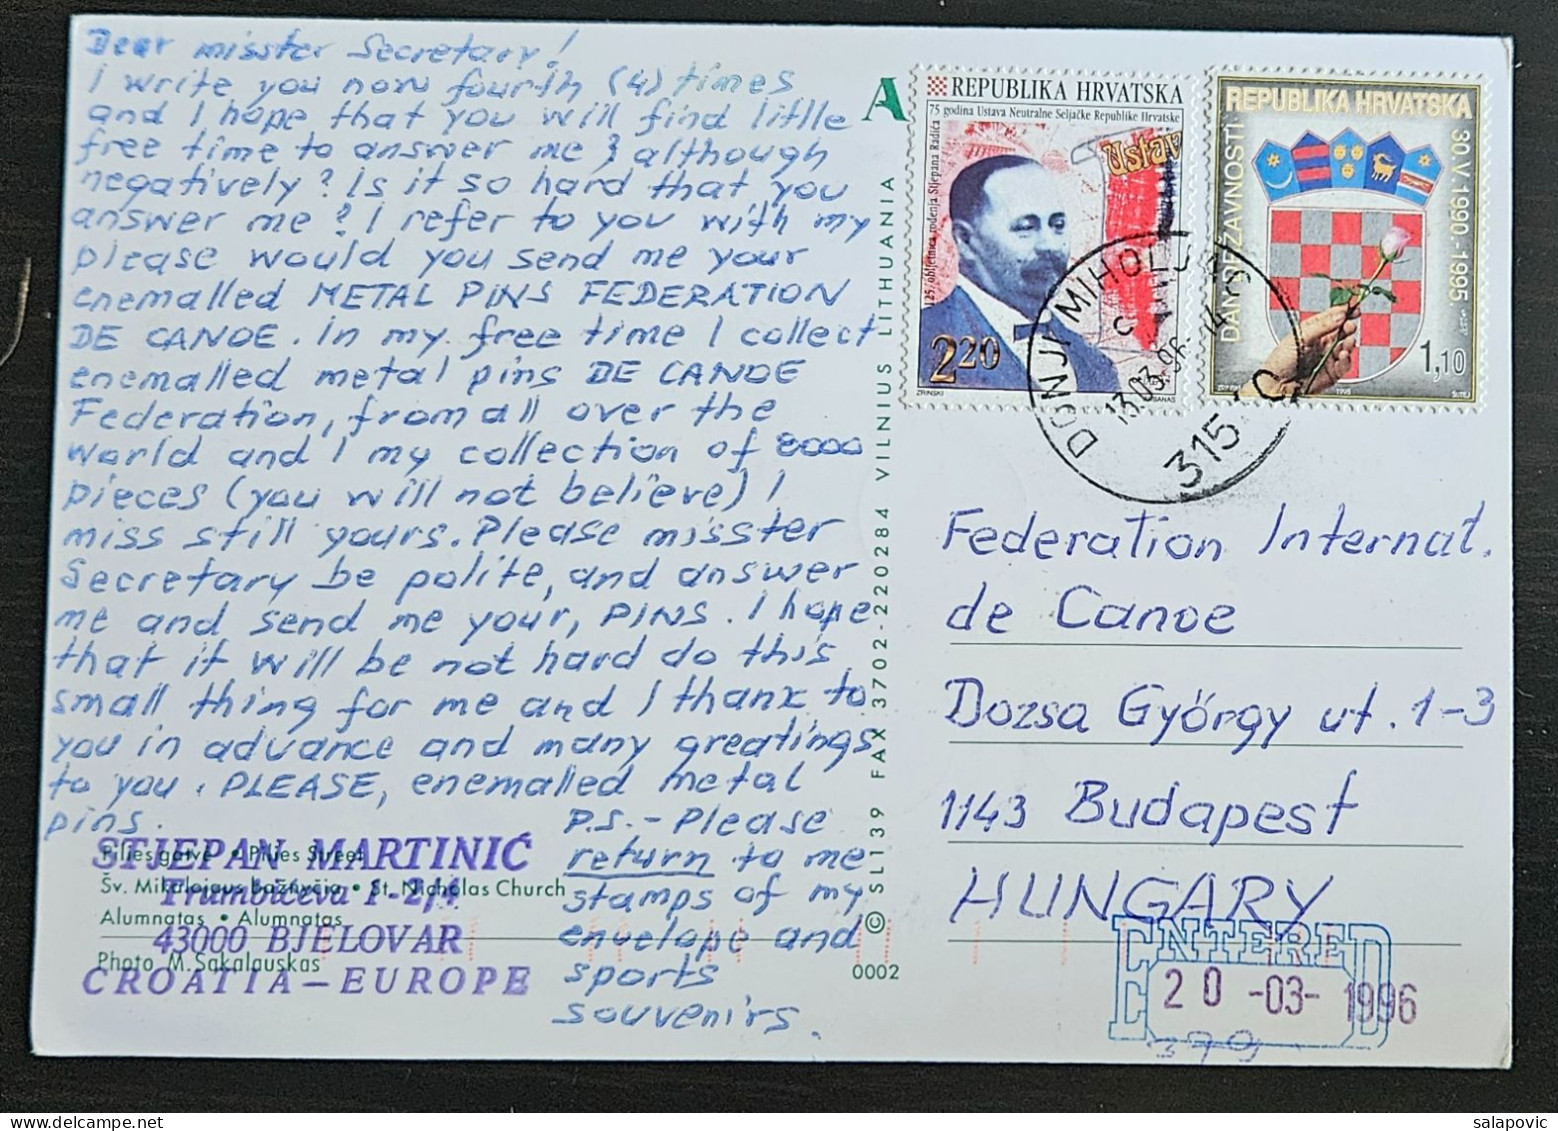 Dear misster Secretary!
I write you now fourth (4) times
and I hope that you will find litlle
free time to answer me, although
negatively? Is it so hard that you
answer me? I refer to you with my
please would you send me your
enemalled METAL PINS FEDERATION
DE CANOE. In my free time I collect
enemalled metal pins DE CANOE
Federation, from all over the
world and I my collection of 8000
pieces (you will not believe) I
miss still yours. Please misster
Secretary be polite, and answer
me and send me your, PINS. I hope
that it will be not hard do this
small thing for me and I thanx to
you in advance and many greatings
to you. PLEASE, enemalled metal
pins.
P.S.-Please
return to me
stamps of my
envelope and
sports
souvenirs.
STJEPAN MARTINIĆ
Trumbićeva 1-2/4
43000 BJELOVAR
CROATIA-EUROPE
Pilies gatvė • Pilies Street
Šv. Mikalojaus bažnyčia • St. Nicholas Church
Alumnatas • Alumnatas
Photo M. Sakalauskas
© SL 139 FAX 3702-220284 VILNIUS LITHUANIA
A
0002
REPUBLIKA HRVATSKA
75 godina Ustava Neutralne Seljačke Republike Hrvatske
125. obljetnica rođenja Stjepana Radića
Ustav
2 20
ZRINSKI
REPUBLIKA HRVATSKA
DAN DRŽAVNOSTI
30. V. 1990.-1995.
1,10
1995
DONJI MIHOLJAC
13.03.96.14
C
315 C
Federation Internat.
de Canoe
Dozsa György ut. 1-3
1143 Budapest
HUNGARY
ENTERED
20 -03- 1996
379
salapovic